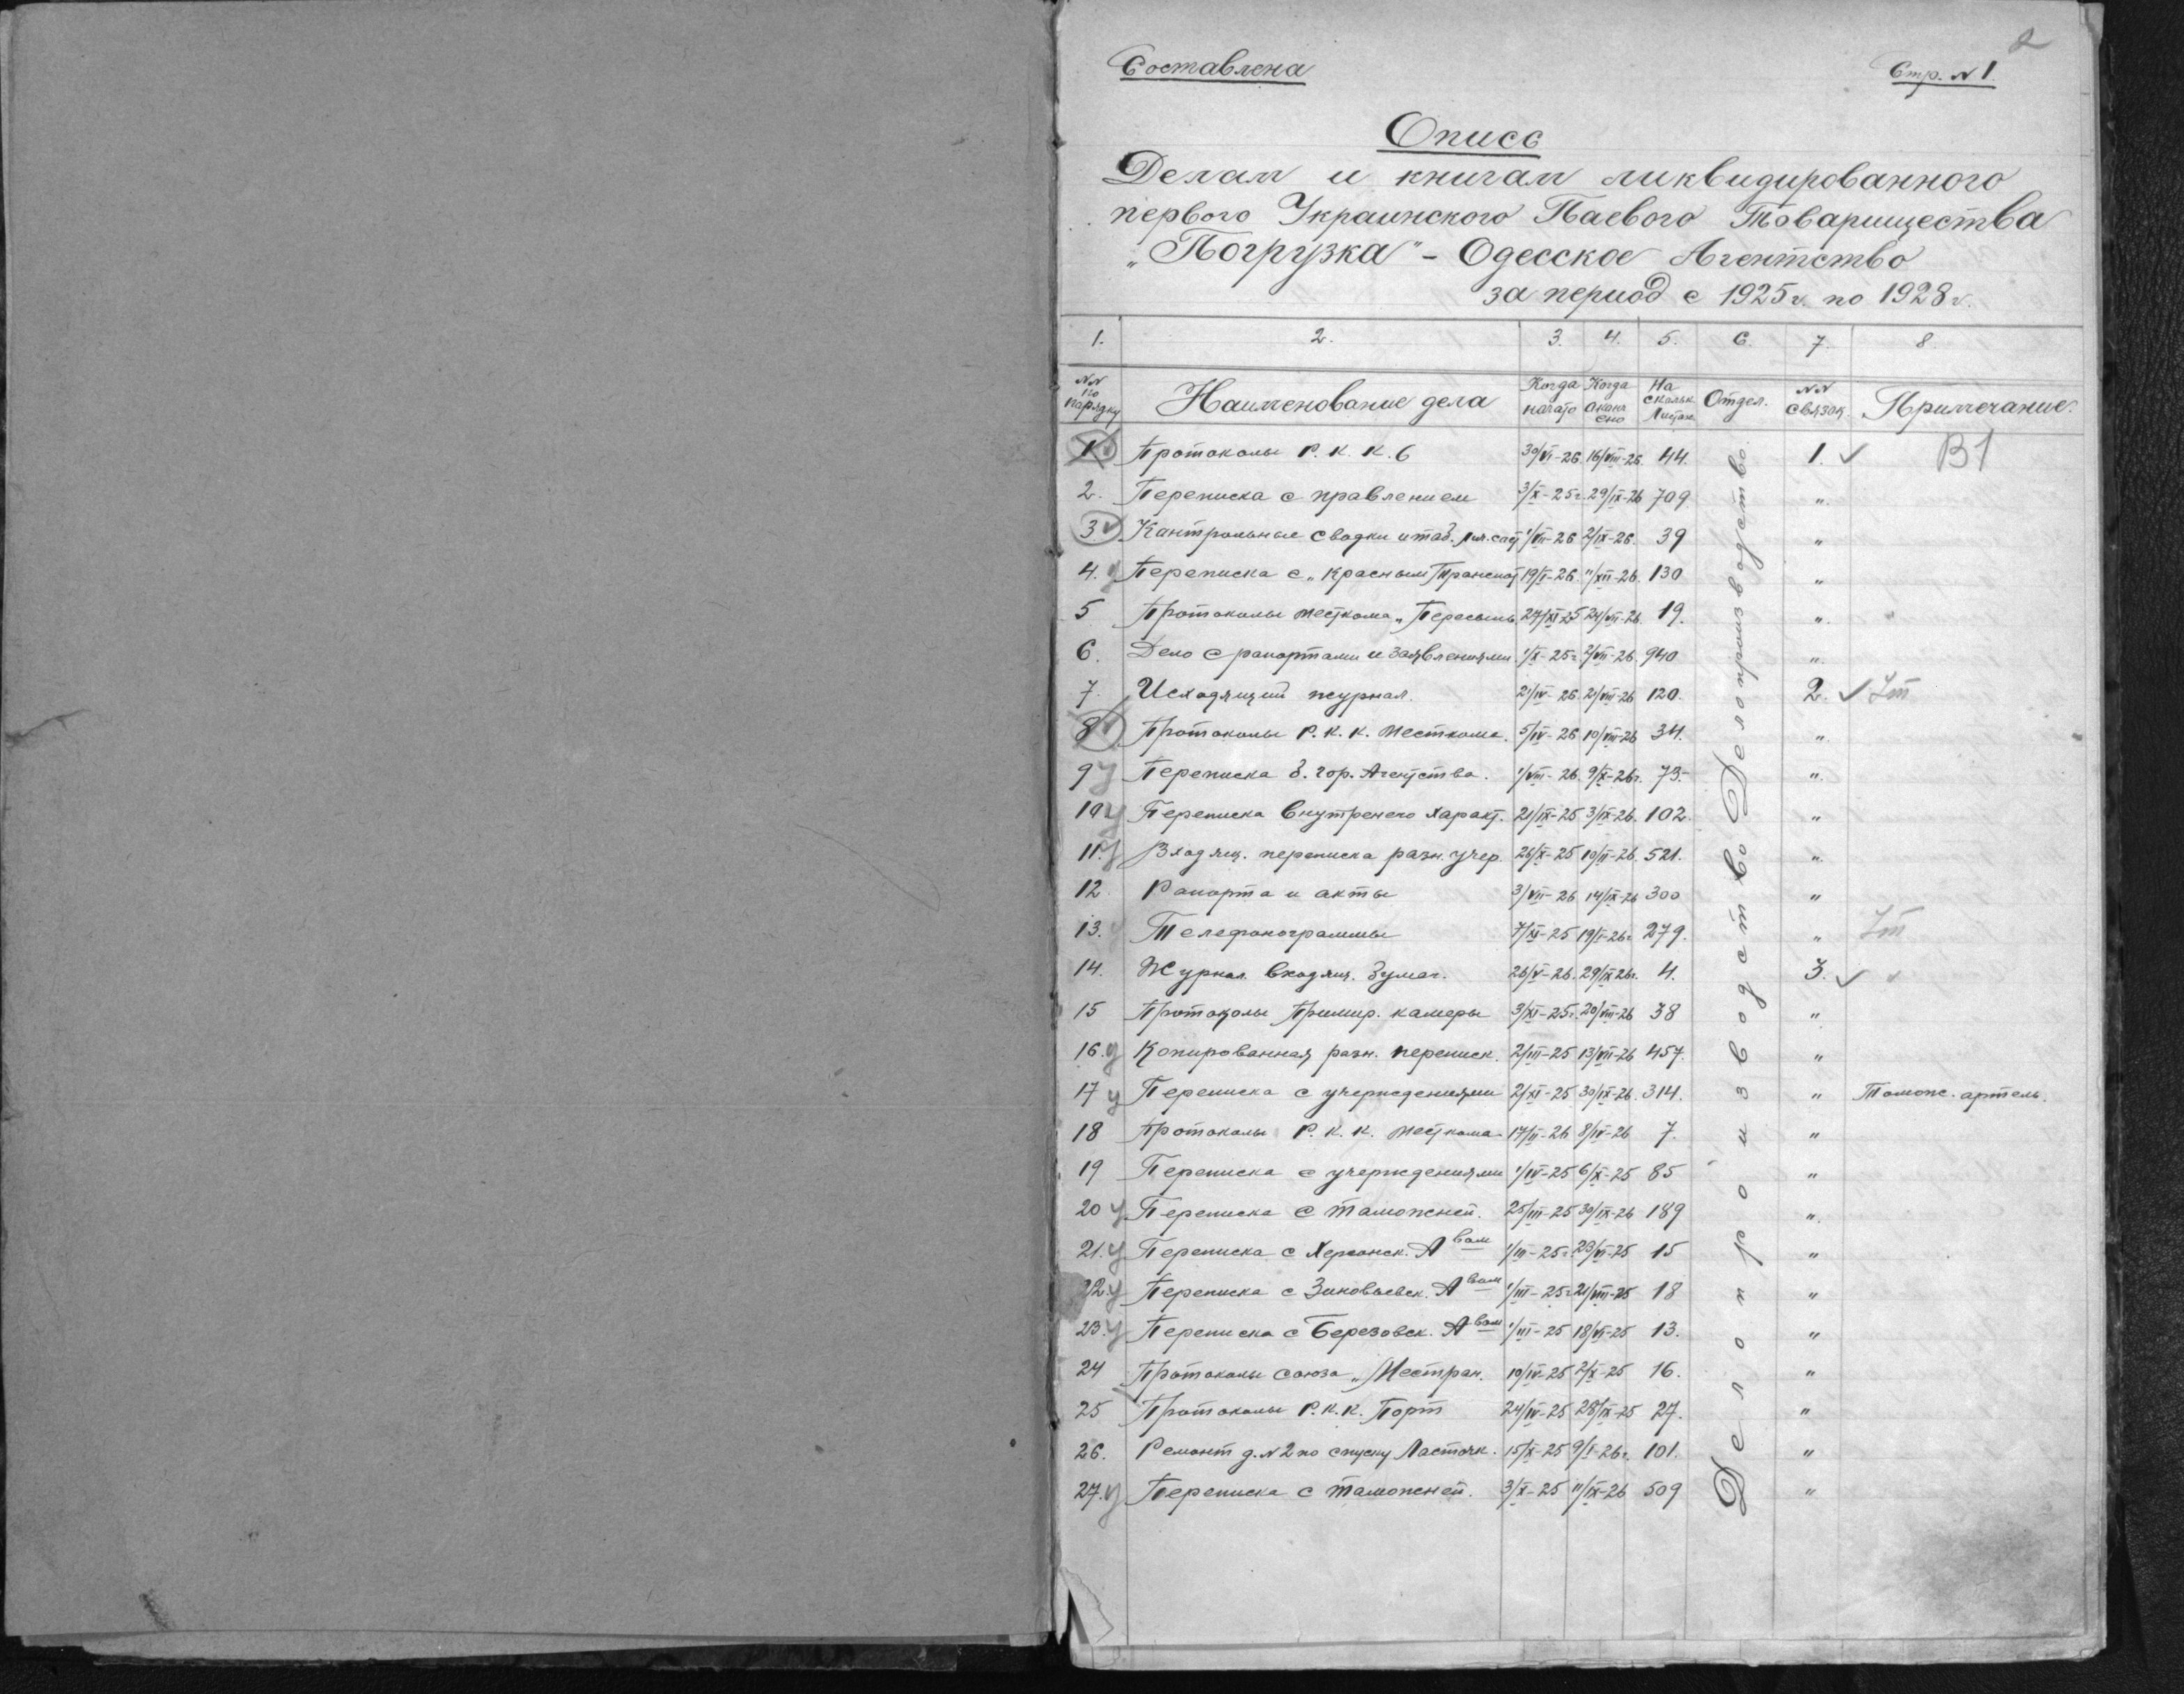 2
Составлена
Стр. № 1.
Опись
Делам и книгам ликвидированного
первого Украинского Паевого Товарищества
„Погрузка" - Одесское Агентство
за период с 1925 г. по 1928 г.
1. 2. 3. 4. 5. 6. 7. 8.
№№ по парядку Наименование дела Когда начато Когда оканчено На скольк. Листах Отдел. №№ связок. Примечание.
Делопроизводство Делопроизводство
1 Протоколы Р. К. К. 6 30/VI-26. 16/VIII-26. 44. 1. В1
2. Переписка с правлением 3/X-25г. 29/IX-26 709 "
3. Кантрольные сводки и таб. лич. сост 1/VII-26 2/IX-26. 39 "
4. Переписка с „Красным Транспорт 19/I-26. 11/XII-26. 130 "
5 Протоколы месткома „Пересыпь 27/XI-25 24/VII-26. 19. "
6. Дело с рапортами и заявлениями. 1/X-25г. 2/VII-26. 940 "
7. Исходящий журнал. 21/IV-26. 21/VIII-26 120. 2.
8 Протоколы Р. К. К. Месткома. 5/IV-26 10/VIII-26 34. "
9 Переписка б. гор. Агентства. 1/VIII-26. 9/X-26г. 73. "
10 Переписка внутренего характ. 21/IX-25 3/IX-26. 102. "
11. Входящ. переписка разн. учер. 26/X-25 10/II-26. 521. "
12. Рапорта и акты 3/VII-26 14/IX-26 300 "
13. Телефонограммы 7/XI-25 19/I-26г. 279. "
14. Журнал входящ. бумаг. 26/V-26. 29/IX 26г. 4. 3.
15 Протоколы Примир. камеры 3/XI-25г. 20/VIII-26 38 "
16. Копированная разн. переписк. 2/III-25 13/VII-26 457. "
17 Переписка с учереждениями 2/XI-25 30/IX-26. 314. " Таможс. артель.
18 Протоколы Р. К. К. Месткома 17/II-26 8/IV-26 7. "
19 Переписка с учереждениями 1/IV-25 6/X-25 85 "
20 Переписка с таможней. 25/III-25 30/IX-26 189 "
21. Переписка с Херсонск. Авом 1/III-25г. 23/VI-25 15 "
22. Переписка с Зиновьевск. Авом 1/III-25г. 21/VIII-25 18 "
23. Переписка с Березовск. Авом 1/III-25 18/VI-25 13. "
24 Протоколы союза „Местран. 10/IV-25 2/X-25 16. "
25 Протоколы Р. К. К. Порт 24/IV-25 28/IX-25 27. "
26. Ремонт д. № 2 по спуску Ласточк. 15/X-25 9/I-26г. 101. "
27. Переписка с таможней. 3/X-25 11/IX-26 509 "